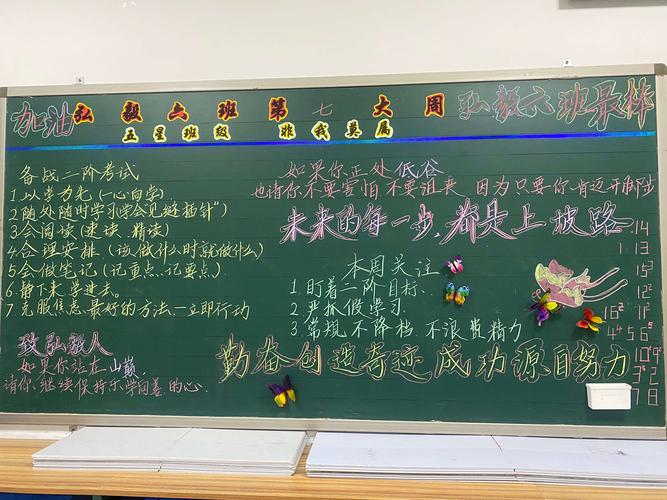 加油 弘毅六班第七大周 弘毅六班最棒
五星班级 非我莫属
备战二阶考试
1 以学为先（一心向学）
2 随处随时学习（学会见缝插针"）
3 会阅读（速读、精读）
4 合理安排（该做什么时就做什么）
5 会做笔记（记重点、记要点）
6 静下来，学进去。
7 克服焦虑最好的方法—立即行动
致弘毅人
如果你站在山巅，
请你继续保持乐学向善的心.
如果你正处低谷
也请你不要害怕 不要沮丧 因为只要你肯迈开脚步
未来的每一步，都是上坡路
本周关注
1 盯着二阶目标.
2 严抓假学习.
3 常规不降档 不浪费精力
勤奋创造奇迹 成功源自努力
14
1 13
12
15
16² 1²
4 5 6⁵
10 9
3 2
7 8